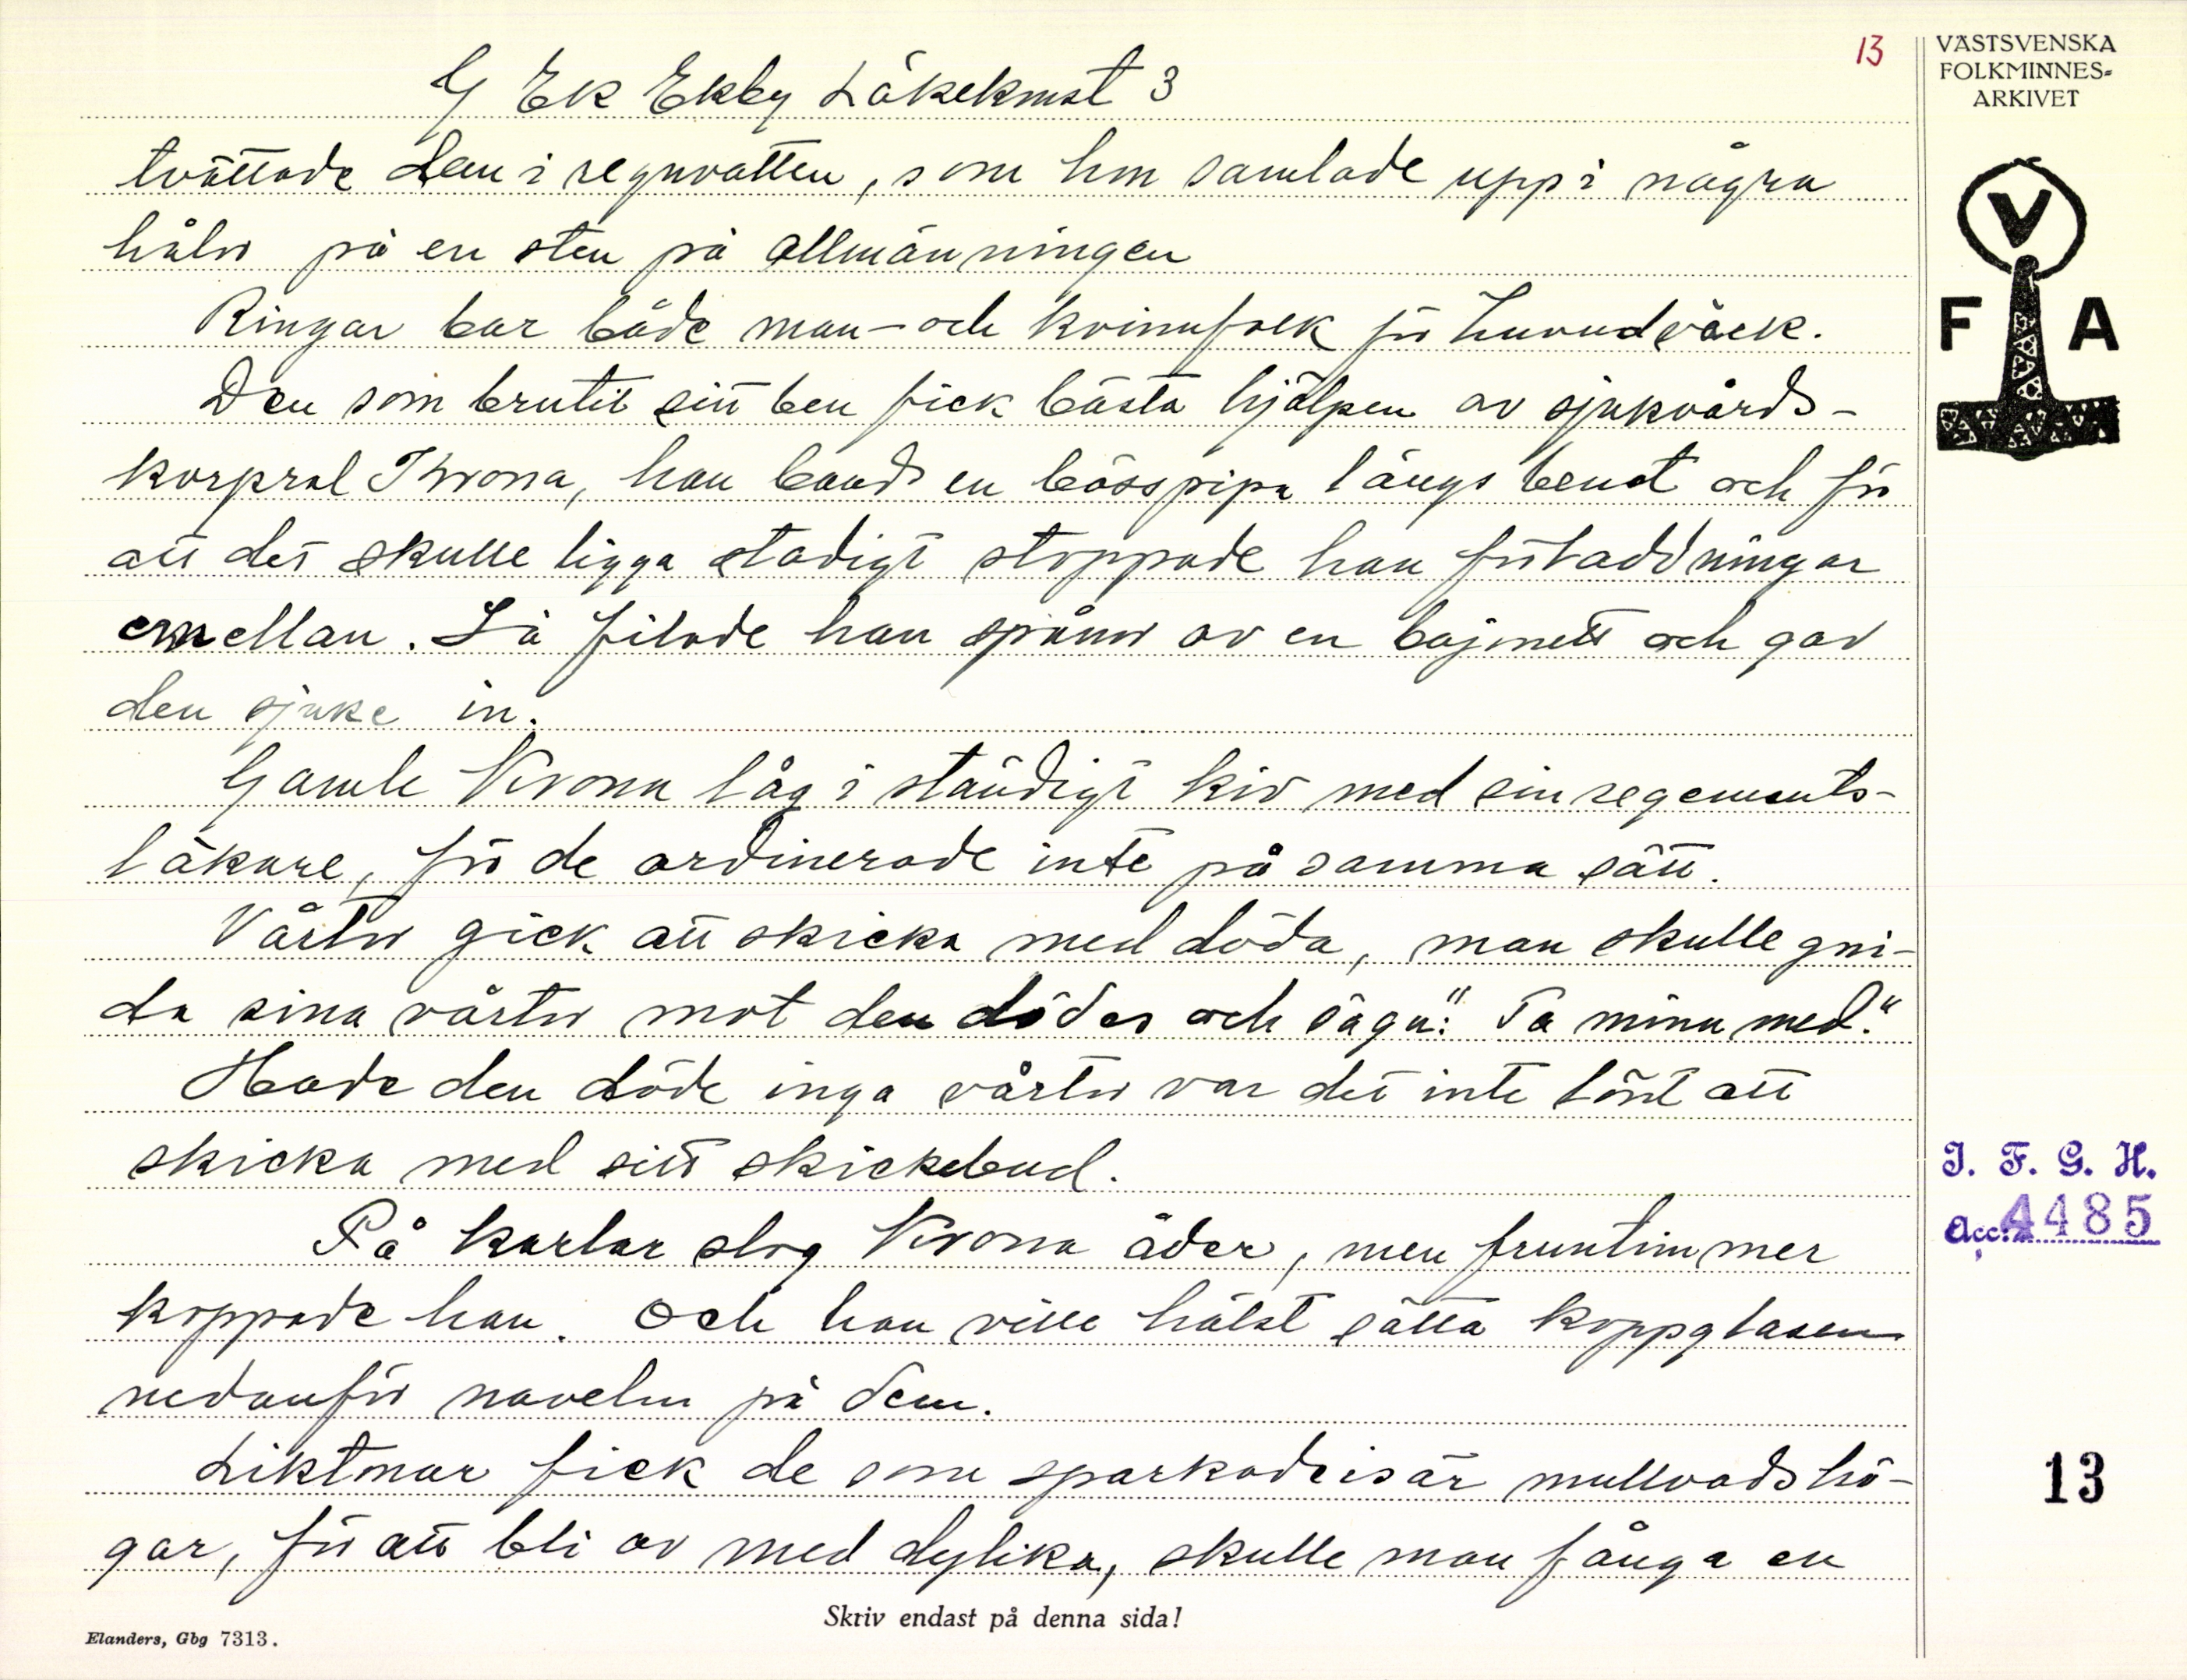 13
VÄSTSVENSKA
FOLKMINNES-
ARKIVET
V
F A
G Ek Ekby Läkekonst 3
tvättade dem i regnvatten, som hon samlade upp i några
hålor på en sten på allmänningen
Ringar bar både man- och kvinnfolk för huvudvärk.
Den som brutit sitt ben fick bästa hjälpen av sjukvårds-
korpral Kvorna, han band en bösspipa längs benet och för
att det skulle ligga stadigt stoppade han förladdningar
emellan. Så filade han spånor av en bajonett och gav
den sjuke in.
Gamle Kvorna låg i ständigt kiv med sin regements-
läkare, för de ordinerade inte på samma sätt.
Vårtor gick att skicka med döda, man skulle gni-
da sina vårtor mot den dödes och säga: "Ta mina med."
Hade den döde inga vårtor var det inte lönt att
skicka med sitt skickebud.
På karlar slog Kvorna åder, men fruntimmer
koppade han. Och han ville hälst sätta koppglasen
nedanför naveln på dem.
Liktornar fick de som sparkade isär mullvadshö-
gar, för att bli av med dylika, skulle man fånga en
I. F. G. H.
Acc. 4485
13
Skriv endast på denna sida!
Elanders, Gbg 7313.